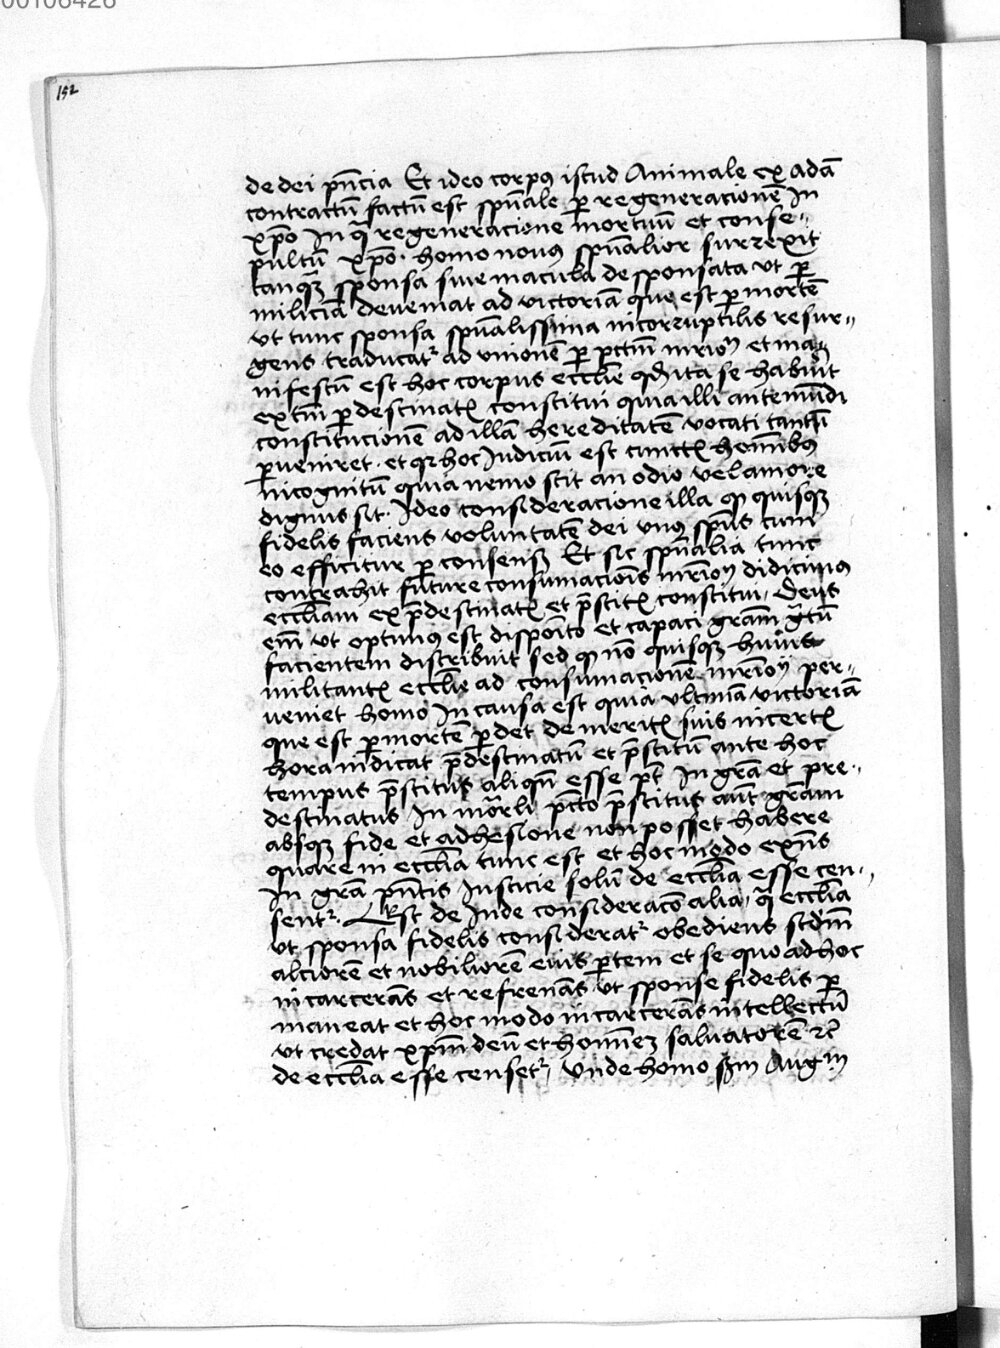 00106426
152
de dei pn̄cia Et ideo corpꝰ istud Animale ex adā
contractū factū est spūale ꝑ regeneracionē In
xp̄o In q̄ regeneracione mortuū et conse-
pultū xp̄o · homo novꝰ spūalior surrexit
tanqꝫ sponsa sine macula desponsata ut ꝑ
miliciā deveniat ad victoriā que est ꝑ mortē
ut tunc sponsa spūalissima incorruptilis resur-
gens traducat᷑ ad unionē ꝑ ꝑctm̄ mr̄ioȳ et ma-
nifestū est hoc corpus eccl̄ie qd̄ ita se habuit
ex tm̄ p̄destinatꝭ constitui quia illi ante mūdi
constitucionē ad illā hereditatē vocati tantū
ꝑveniret · et qꝛ hoc Iudiciū est cunctꝭ hoīnibꝰ
incognitū quia nemo scit an odio vel amore
dignus sit · Ideo consideracione illa qꝫ quisqꝫ
fidelis faciens voluntatē dei unꝰ spūs cum
eo efficitur ꝑ consensū Et sic spūalia tunc
contrahit future consumacionis mr̄ioȳ didicimꝰ
eccl̄iam ex p̄destinatꝭ et p̄scitꝭ constitui, Deus
em̄ ut optimꝰ est disposito et capaci grām gr̄tū
facientem distribuit sed qꝫ nō quisqꝫ huiꝰ
militantꝭ eccl̄ie ad consumacionē mr̄ioȳ per-
veniet homo In causa est quia ultimā victoriā
que est ꝑ mortē ꝑdet demeritꝭ suis incertꝭ
hora indicat p̄destinatū et p̄scitū ante hoc
tempus p̄scitus aliqn̄ esse pt̄ In grā et pre-
destinatus In mōrli pcc̄to p̄scitus aūt grām
absqꝫ fide et adhesione non posset habere
quare in eccl̄ia tunc est et hoc modo exn̄s
In grā pn̄tis Iusticie solū de eccl̄ia esse cen-
sent᷑. Est deinde consideracō alia, q̄ eccl̄ia
ut sponsa fidelis considerat᷑ obediens scdm̄
alciorē et nobiliorē eius ꝑtem et se quo ad hoc
incarcerās et refrenās ut sponse fidelis ꝑ
maneat et hoc modo incarcerās intellectū
ut credat xp̄m deū et hominē salvatorē ꝛc̄
de eccl̄ia esse censet᷑, Unde homo scđm Auḡm